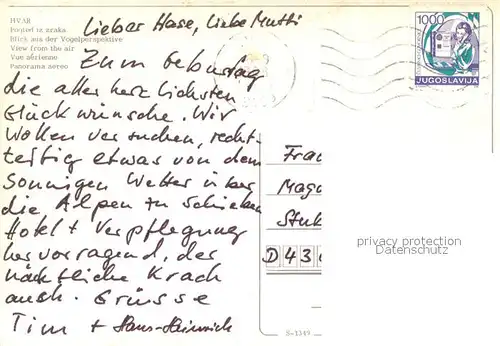 HVAR
Pogled iz zraka
Blick aus der Vogelperspektive
View from the air
Vue aérienne
Panorama aereo
Lieber Hase, Liebe Mutti
Zum Geburtstag
die aller herzlichsten
Glückwünsche. Wir
wollen versuchen, recht-
zeitig etwas von dem
Sonnigen Wetter über
die Alpen zu schieben
Hotel + Verpflegung
hervorragend, der
nächtliche Krach
auch. Grüsse
Tim + Hans-Heinrich
1000
JUGOSLAVIJA
Frau
Mag
Stub
D 43
privacy protection
Datenschutz
S-1349